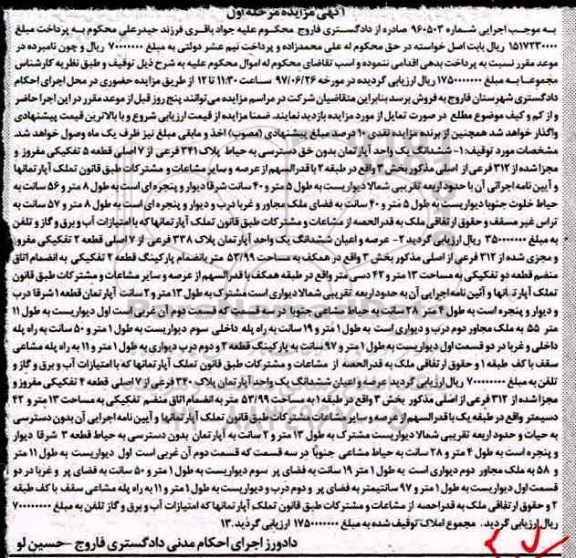 آگهی مزایده مرحله اول
به موجب اجرایی شماره ۹۶۰۵۰۳ صادره از دادگستری فاروج محکوم علیه جواد باقری فرزند حیدرعلی محکوم به پرداخت مبلغ
۱۵۱۷۲۳۰۰۰۰ ریال بابت اصل خواسته در حق محکوم له علی محمدزاده و پرداخت نیم عشر دولتی به مبلغ ۷۰۰۰۰۰۰۰ ریال و چون نامبرده در
موعد مقرر نسبت به پرداخت بدهی اقدامی ننموده و اسب تقاضای محکوم له اموال محکوم علیه به شرح ذیل توقیف و طبق نظریه کارشناس
مجموعا به مبلغ ۱۷۵۰۰۰۰۰۰۰ ریال ارزیابی گردیده در مورخه ۹۷/۰۶/۲۶ ساعت ۱۱:۳۰ تا ۱۲ از طریق مزایده حضوری در محل اجرای احکام
دادگستری شهرستان فاروج به فروش برسد بنابراین متقاضیان شرکت در مراسم مزایده می توانند پنج روز قبل از موعد مقرر در این اجرا حاضر
و از کم و کیف موضوع مطلع در صورت تمایل از مورد مزایده بازدید نمایند. ضمنا مزایده از قیمت ارزیابی شروع و با بالاترین قیمت پیشنهادی
واگذار خواهد شد همچنین از برنده مزایده نقدی ۱۰ درصد مبلغ پیشنهادی (مصوب) اخذ و مابقی مبلغ نیز ظرف یک ماه وصول خواهد شد
مشخصات مورد توقیف: ۱- ششدانگ یک واحد آپارتمان بدون حق دسترسی به حیاط پلاک ۳۴۱ فرعی از ۷ اصلی قطعه ۵ تفکیکی مفروز و
مجزا شده از ۳۱۲ فرعی از اصلی مذکور بخش ۳ واقع در طبقه ۲ با قدرالسهم از عرصه و سایر مشاعات و مشترکات طبق قانون تملک آپارتمانها
و آیین نامه اجرائی آن با حدود اربعه تقریبی شمالا دیواریست به طول ۵ متر و ۴۰ سانت شرقا دیوار و پنجره ای است به طول ۸ متر و ۵۶ سانت به
حیاط خلوت جنوبا دیواریست به طول ۵ متر و ۴۰ سانت به فضای ملک مجاور و غربا درب و دیوار و پنجره ای است به طول ۸ متر و ۵۷ سانت به
تراس غیر مسقف و حقوق ارتفاقی ملک به قدر الحصه از مشاعات و مشترکات طبق قانون تملک آپارتمانها که با امتیازات آب و برق و گاز و تلفن
به مبلغ ۳۵۰۰۰۰۰۰۰ ریال ارزیابی گردید ۲- عرصه و اعیان ششدانگ یک واحد آپارتمان پلاک ۳۳۸ فرعی از ۷ اصلی قطعه ۲ تفکیکی مفروز
و مجزی شده از ۳۱۲ فرعی از اصلی مذکور بخش ۳ واقع در همکف به مساحت ۵۳/۹۹ متر بانضمام پارکینگ قطعه ۲ تفکیکی به انضمام اتاق
منضم قطعه دو تفکیکی به مساحت ۱۳ متر و ۴۲ دسی متر واقع در طبقه همکف با قدرالسهم از عرصه و سایر مشاعات و مشترکات طبق قانون
تملک آپارتمانها و آئین نامه اجرایی آن به حدود اربعه تقریبی شمالا دیواری است مشترک به طول ۱۳ متر و ۲ سانت آپارتمان قطعه ۱ شرقا درب
و دیوار و پنجره است به طول ۴ متر ۲۸ سانت به حیاط مشاعی جنوبا در سه قسمت که قسمت دوم آن غربی است اول دیواریست به طول ۱۱
متر ۵۵ به ملک مجاور دوم درب و دیواری است به طول ۱ متر و ۱۹ سانت به راه پله داخلی سوم دیواریست به طول ۱ متر و ۵۰ سانت به راه پله
داخلی و غربا در دو قسمت اول دیواریست به طول ۱ متر و ۹۷ سانت به پارکینگ قطعه ۲ و دوم درب دیواری به طول ۱ متر و ۱۱ به راه پله مشاعی
سقف با کف طبقه ۱ و حقوق ارتفاقی ملک به قدرالحصه از مشاعات و مشترکات طبق قانون تملک آپارتمانها که با امتیازات آب و برق و گاز و
تلفن به مبلغ ۷۰۰۰۰۰۰۰۰ ریال ارزیابی گردید عرصه و اعیان ششدانگ یک واحد آپارتمان پلاک ۳۴۰ فرعی از ۷ اصلی قطعه ۴ تفکیکی مفروز و
مجزا شده از ۳۱۲ فرعی از اصلی مذکور بخش ۳ واقع در طبقه ۱ به مساحت ۵۳/۹۹ متر به انضمام اتاق منضم تفکیکی به مساحت ۱۳ متر و ۴۲
دسیمتر واقع در طبقه یک با قدرالسهم از عرصه و سایر مشاعات مشترکات طبق قانون تملک آپارتمانها و آیین نامه اجرایی آن بدون دسترسی
به حیات و حدود اربعه تقریبی شمالا دیواریست مشترک به طول ۱۳ متر و ۲ سانت به آپارتمان بدون دسترسی به حیاط قطعه ۳ شرقا دیوار
و پنجره است به طول ۴ متر و ۲۸ سانت به حیاط مشاعی جنوبا در سه قسمت که قسمت دوم آن غربی است اول دیواریست به طول ۱۱ متر
و ۵۸ به ملک مجاور دوم دیواری است به طول ۱ متر ۱۹ سانت به فضای پر سوم دیواریست به طول ۱ متر و ۵۰ سانت به فضای پر و غربا در دو
قسمت اول دیواریست به طول ۱ متر و ۹۷ سانتیمتر به فضای پر و دوم درب و دیواریست به طول ۱ متر و ۱۱ به راه پله مشاعی سقف با کف طبقه
۲ و حقوق ارتفاقی ملک به قدراحصه از مشاعات و مشترکات طبق قانون تملک آپارتمانها که امتیازات آب و برق و گاز تلفن به مبلغ ۷۰۰۰۰۰۰۰۰
ریال ارزیابی گردید. مجموع املاک توقیف شده به مبلغ ۱۷۵۰۰۰۰۰۰۰ ارزیابی گردید.۱۳
دادورز اجرای احکام مدنی دادگستری فاروج - حسین لو